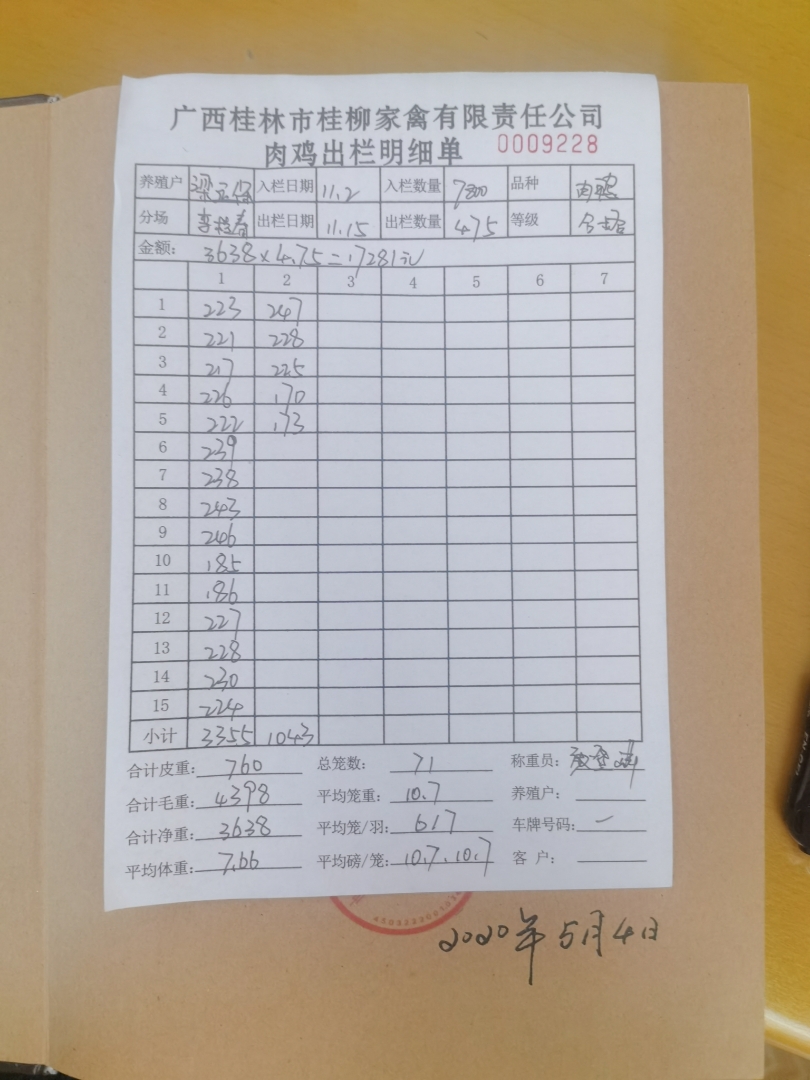 广西桂林市桂柳家禽有限责任公司
肉鸡出栏明细单 0009228
养殖户 入栏日期 11.2 入栏数量 7800 品种 肉鸡
分场 李桂春 出栏日期 11.15 出栏数量 475 等级 合格
金额: 3638×4.75=17281元
1 2 3 4 5 6 7
1 223 247
2 221 228
3 217 225
4 226 170
5 222 173
6 239
7 238
8 243
9 246
10 185
11 186
12 227
13 228
14 230
15 224
小计 3355 1043
合计皮重: 760 总笼数: 71 称重员:
合计毛重: 4398 平均笼重: 10.7 养殖户:
合计净重: 3638 平均笼/羽: 617 车牌号码: 一
平均体重: 7.66 平均磅/笼: 10.7.10.7 客 户:
2020年5月4日